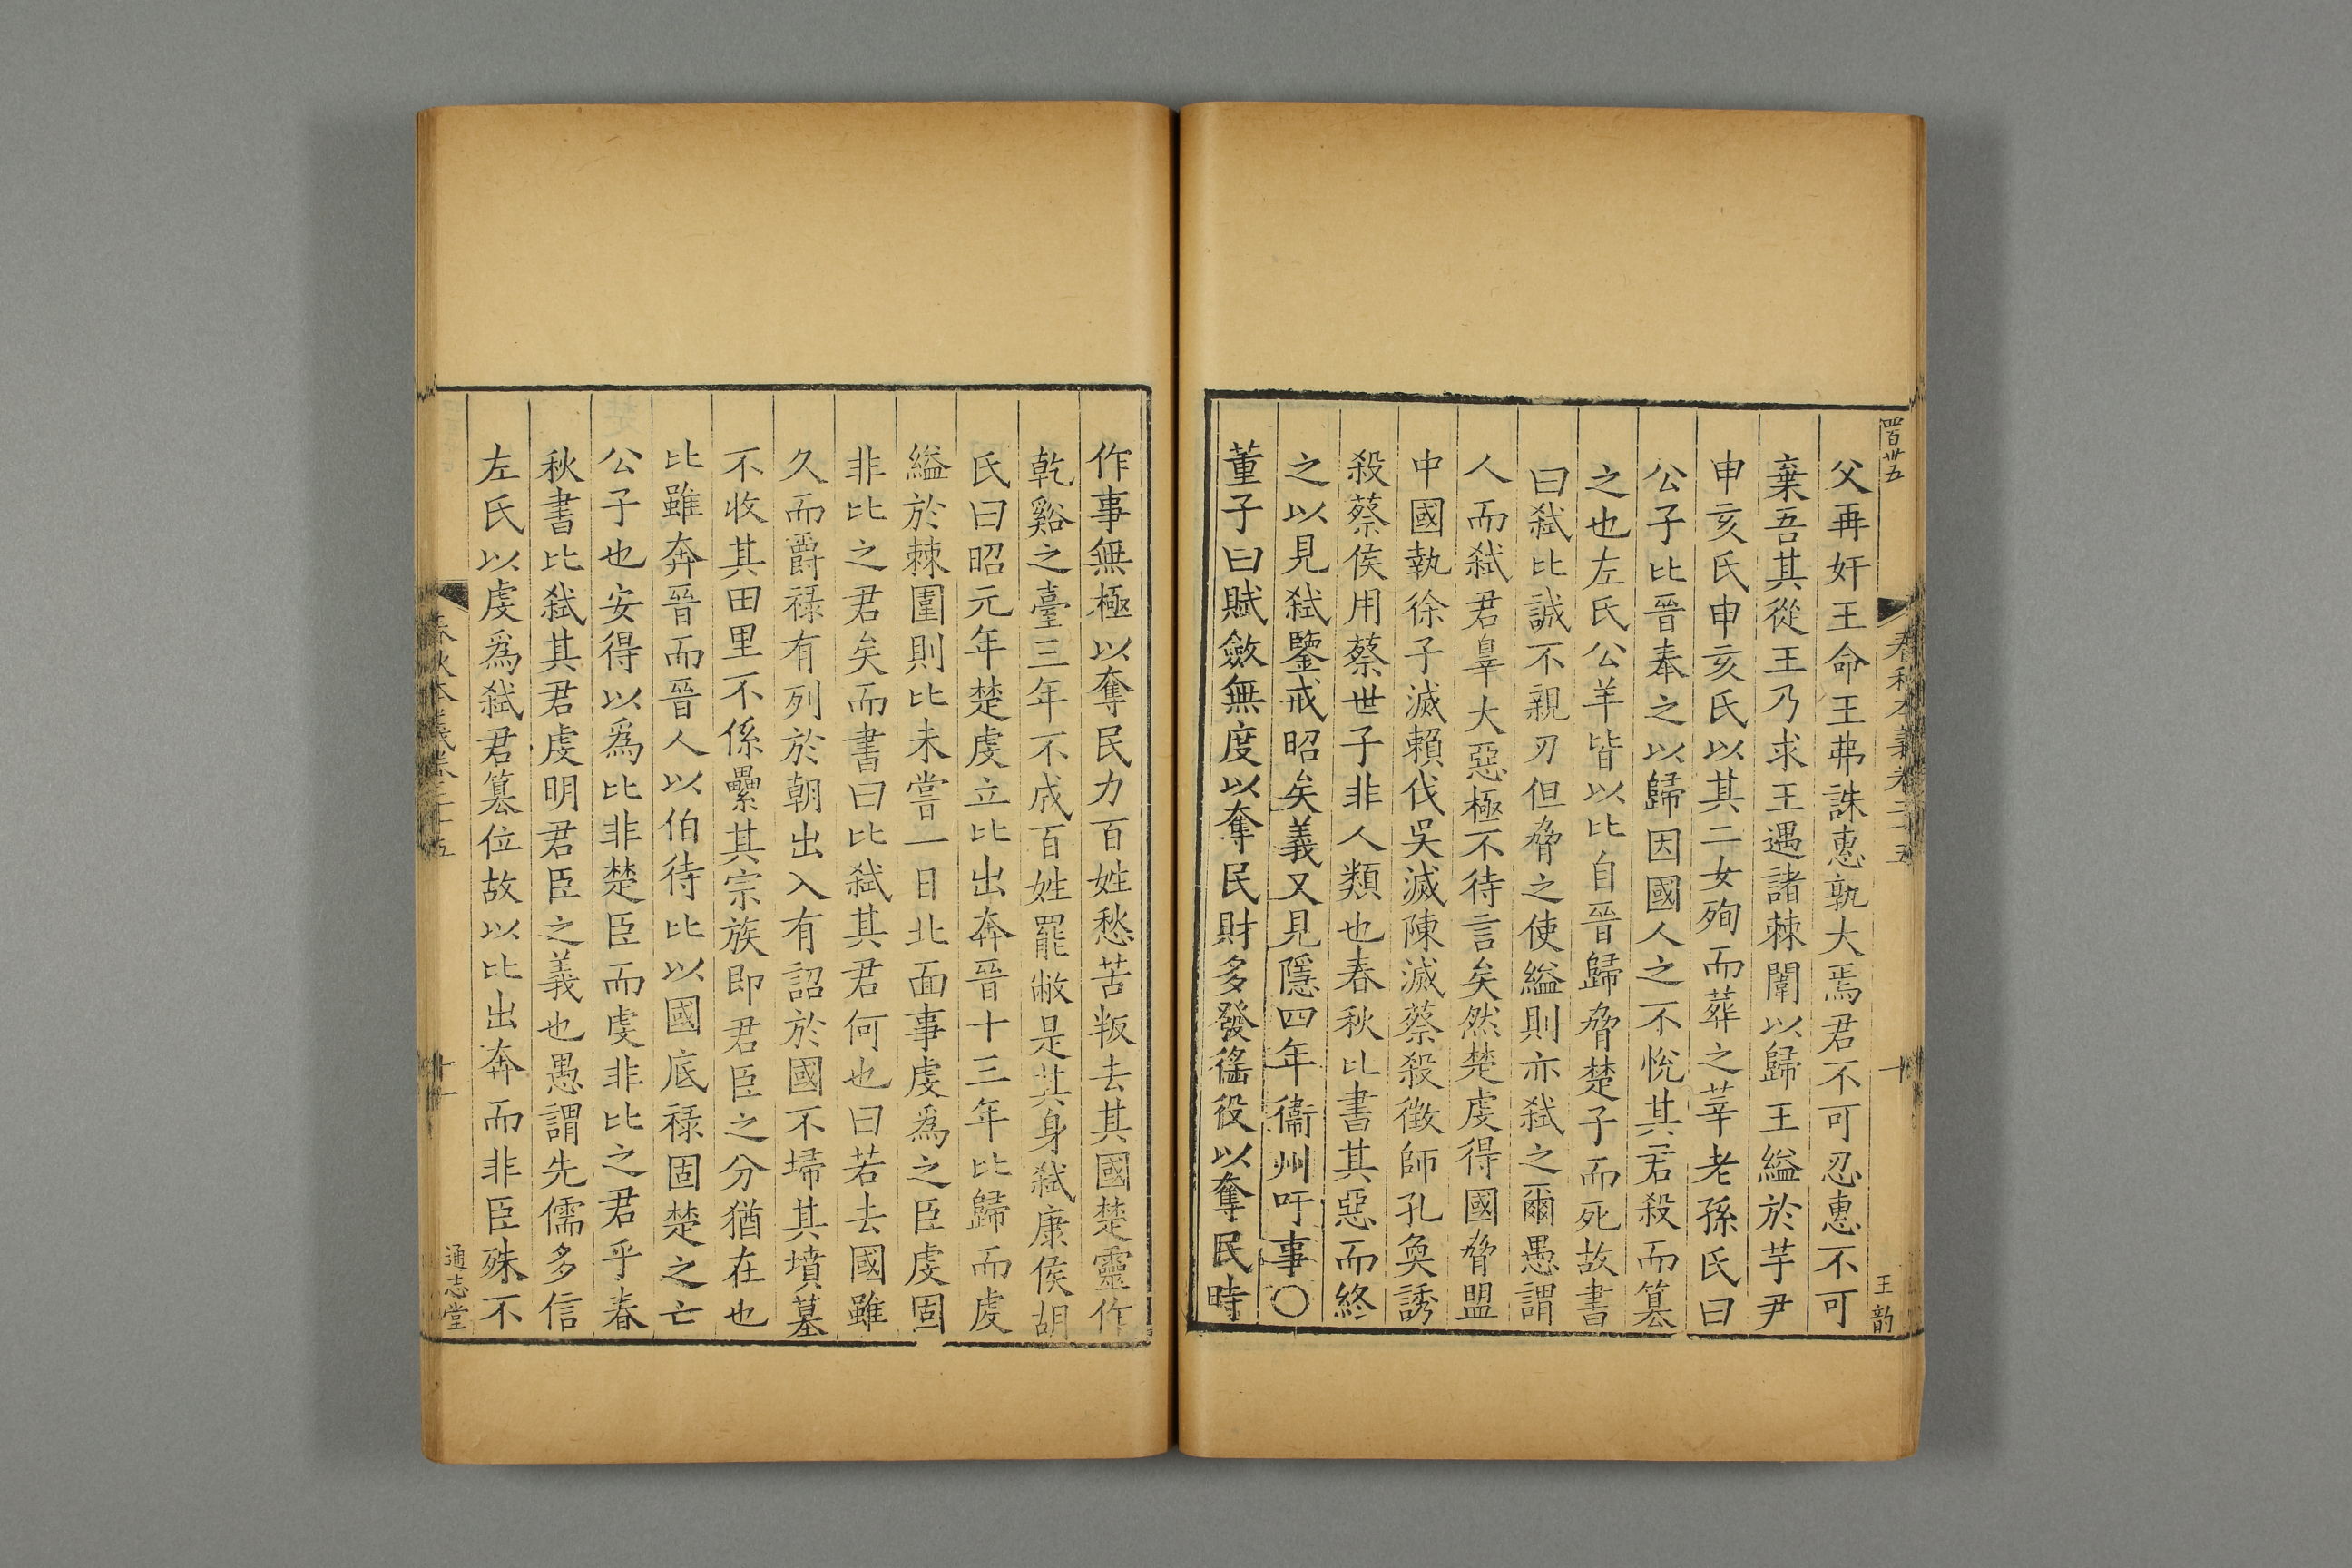 四百卅五
春秋本義卷二十五
十
王韵
父再奸王命王弗誅惠孰大焉君不可忍惠不可
棄吾其從王乃求王遇諸棘闈以歸王縊於芋尹
申亥氏申亥氏以其二女殉而葬之莘老孫氏曰
公子比晉奉之以歸因國人之不悅其君殺而篡
之也左氏公羊皆以比自晉歸脅楚子而死故書
曰弑比誠不親刃但脅之使縊則亦弑之爾愚謂
人而弑君辠大惡極不待言矣然楚虔得國脅盟
中國執徐子滅賴伐吳滅陳滅蔡殺徵師孔奐誘
殺蔡侯用蔡世子非人類也春秋比書其惡而終
之以見弑鑒戒昭矣義又見隱四年衞州吁事〇
董子曰賦斂無度以奪民財多發徭役以奪民時
作事無極以奪民力百姓愁苦叛去其國楚靈作
乾谿之臺三年不成百姓罷敝是其身弑康侯胡
氏曰昭元年楚虔立比出奔晉十三年比歸而虔
縊於棘圍則比未嘗一日北面事虔爲之臣虔固
非比之君矣而書曰比弑其君何也曰若去國雖
久而爵祿有列於朝出入有詔於國不埽其墳墓
不收其田里不係纍其宗族即君臣之分猶在也
比雖奔晉而晉人以伯待比以國底祿固楚之亡
公子也安得以爲比非楚臣而虔非比之君乎春
秋書比弑其君虔明君臣之義也愚謂先儒多信
左氏以虔爲弑君篡位故以比出奔而非臣殊不
春秋本義卷二十五
十一
通志堂